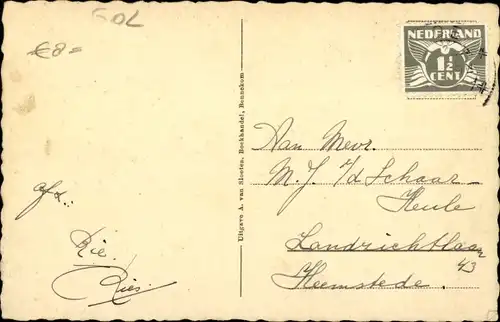 50L
€8=
NEDERLAND
1½
CENT
Uitgave A. van Sloeten, Boekhandel, Bennekom
Aan Mevr.
M.J. v/d Schaar-
Heule
Landrichtlaan
43
Heemstede.
afz.:
Rie.
Ries.